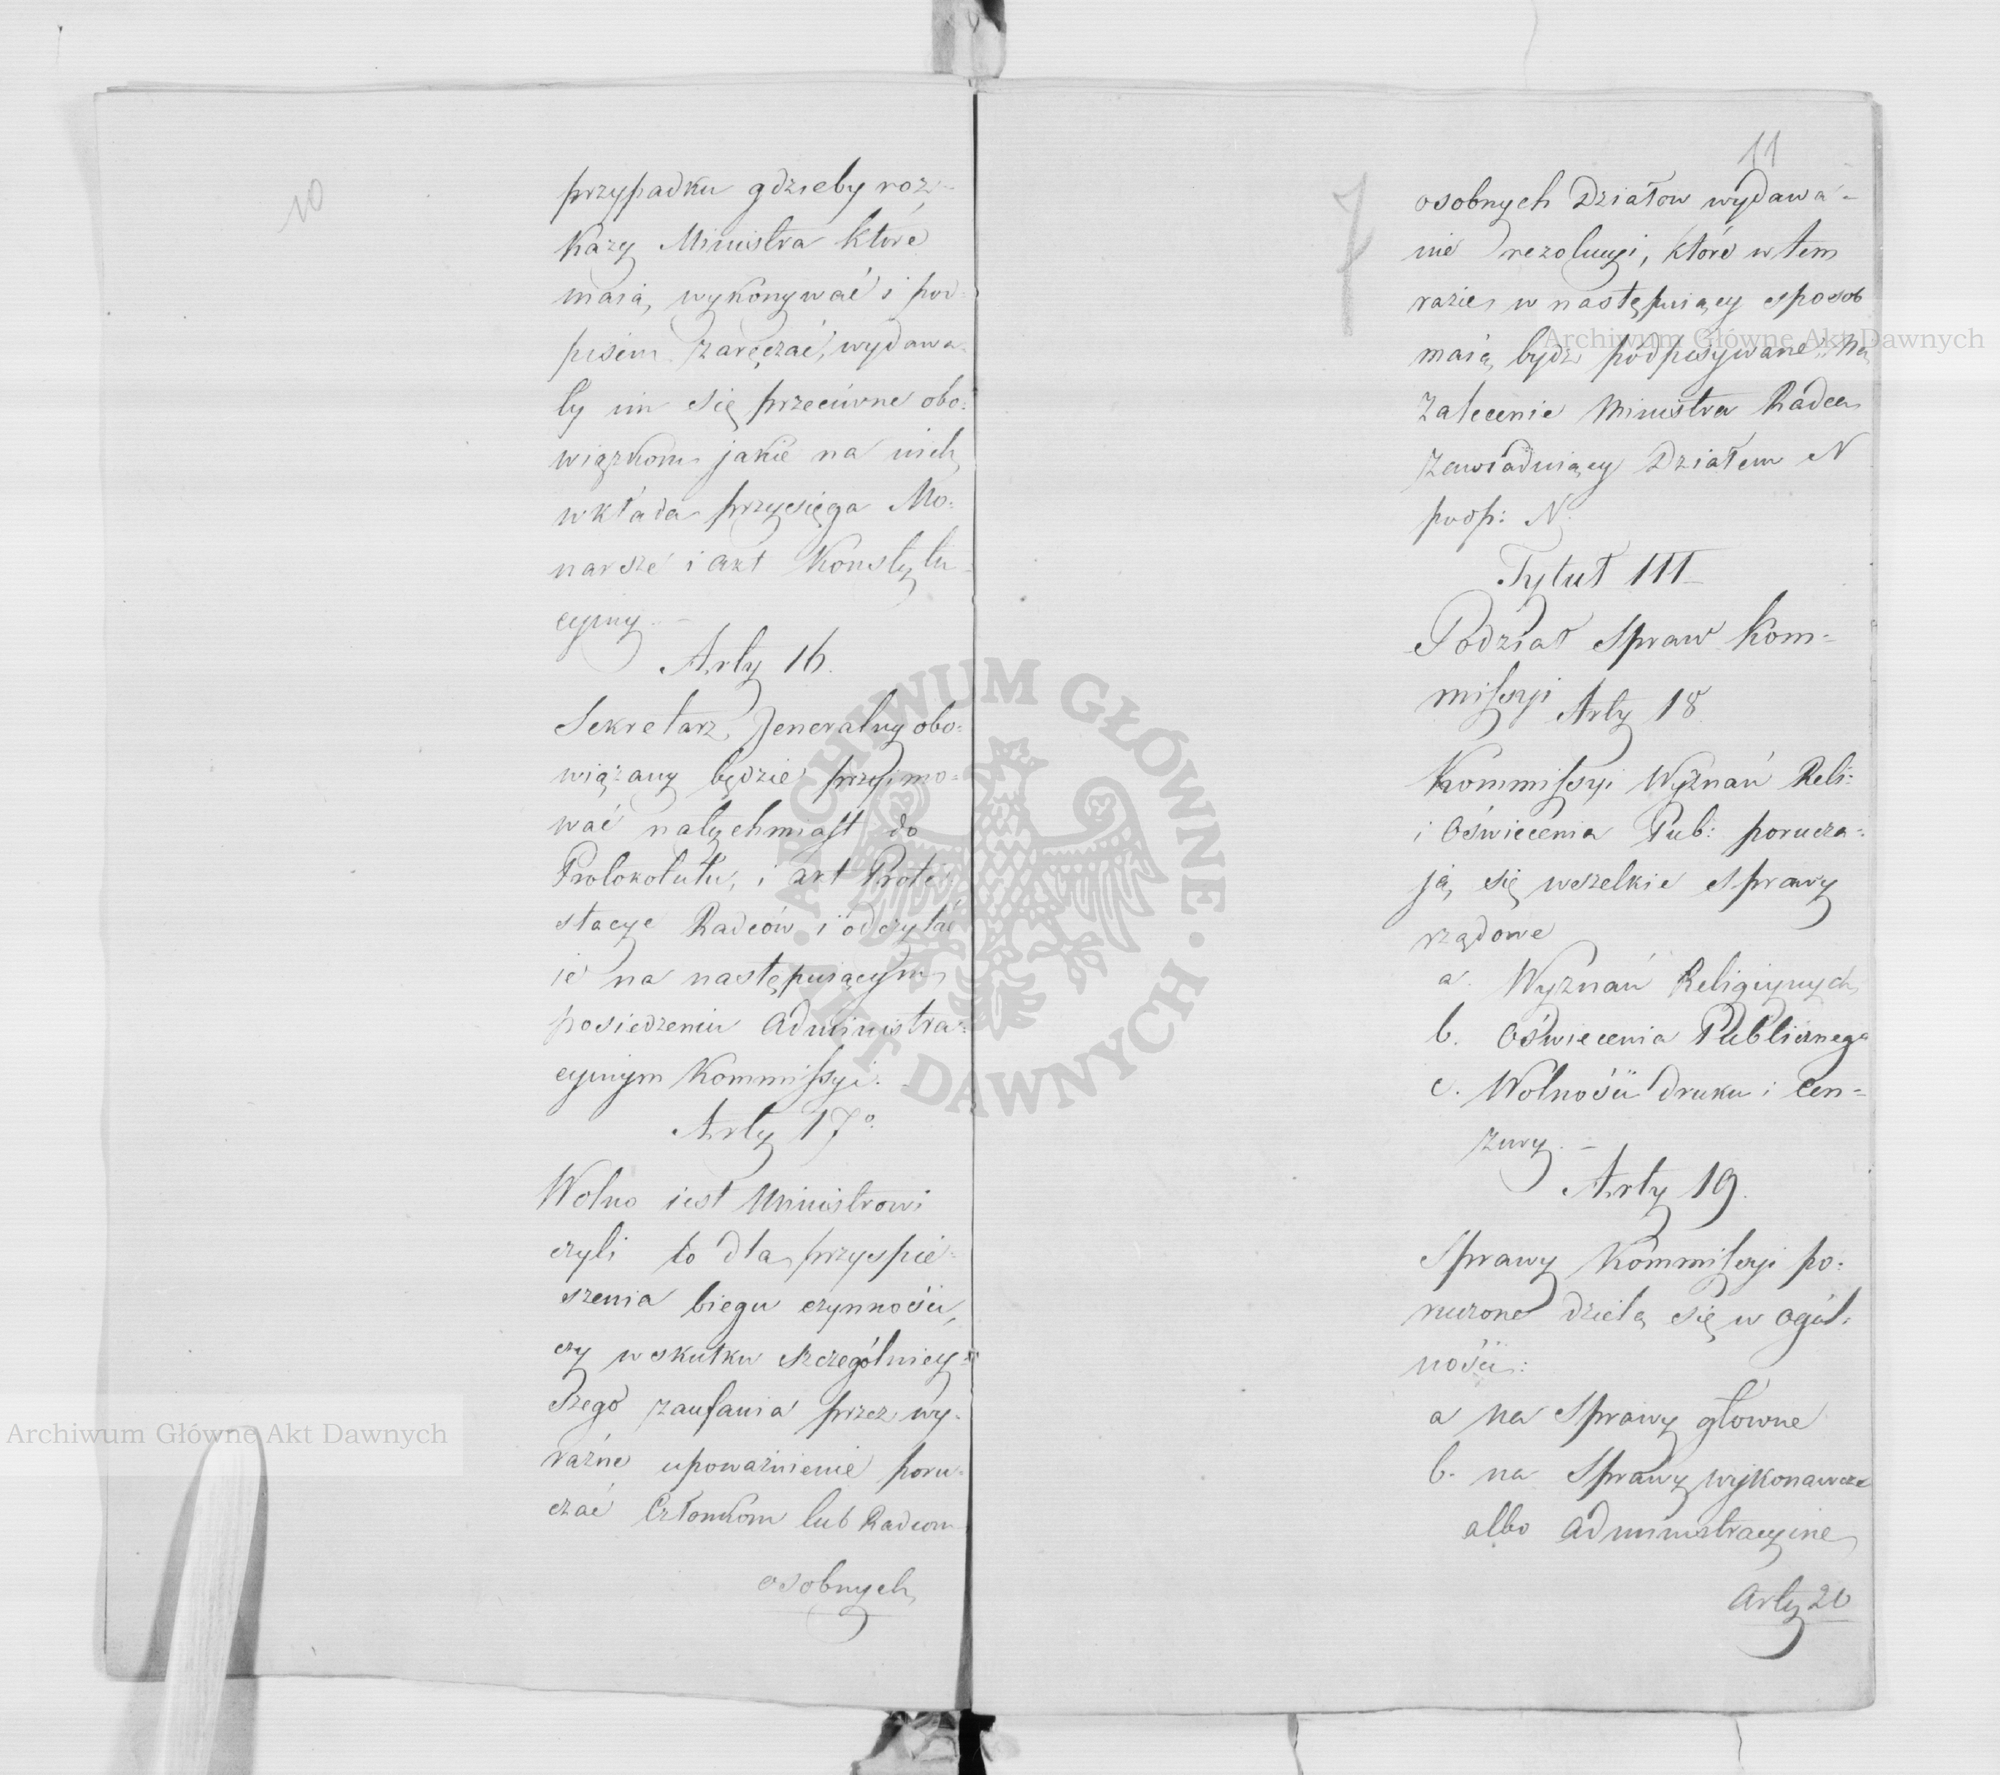 10
przypadku gdzieby roz-
kazy Ministra które
maią wykonywać i pod-
pisem zaręczać, wydawa-
ły im się przeciwne obo-
wiązkom jakie na nich
wkłada przysięga Mo-
narsze i akt Konstytu-
cyiny. –
Arty 16.
Sekretarz Jeneralny obo-
wiązany będzie przyimo-
wać natychmiast do
Protokołułu, i akt Prote-
stacye Radców i odczytać
ie na następuiącym
posiedzeniu Administra-
cyinym Kommissyi.
Arty 17°
Wolno iest Ministrowi
czyli to dla przyspie-
szenia biegu czynności,
czy w skutku szczególniey-
szego zaufania przez wy-
raźne upoważnienie poru-
czać Członkom lub Radcom
osobnych
11
7
osobnych Działow wydawa-
nie rezolucyi, które w tem
razie w następuiący sposob
maią bydź podpisywane: "Na
zalecenie Ministra Radca
zawiaduiący Działem N
podp: N.
Tytuł III
Podział Spraw Kom-
missyi
Arty 18
Kommissyi Wyznań Reli:
i Oświecenia Pub: porucza-
ją się wszelkie sprawy
rządowe
a. Wyznań Religiynych
b. Oświecenia Publicznego
c. Wolności druku i Cen-
zury. –
Arty 19.
Sprawy Kommissyi po-
ruczone dzielą się w ogól-
ności:
a na Sprawy główne
b. na Sprawy wykonawcze
albo Administracyine
Arty 20
Archiwum Główne Akt Dawnych
Archiwum Główne Akt Dawnych
ARCHIWUM GŁÓWNE AKT DAWNYCH